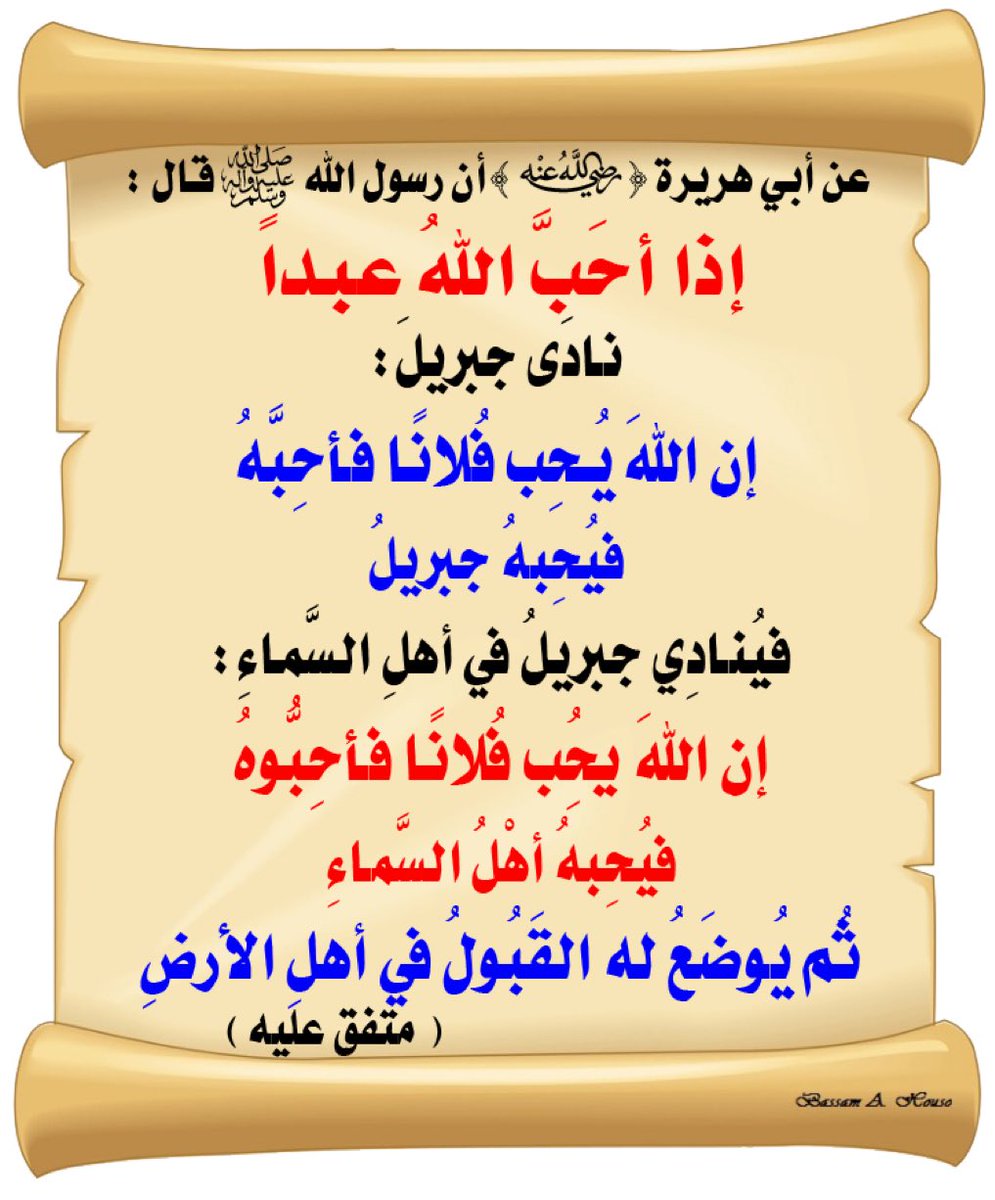 عن أبي هريرة ﴿ رضي الله عنه ﴾ أن رسول الله ﷺ قال :
إذا أحَبَّ اللهُ عبداً
نادى جبريلَ :
إن اللهَ يُحِب فُلانًا فأحِبَّهُ
فيُحِبهُ جبريلُ
فيُنادِي جبريلُ في أهلِ السَّماءِ :
إن اللهَ يحُِب فُلانًا فأحِبُّوهُ
فيُحِبهُ أهْلُ السَّماءِ
ثُم يُوضَعُ له القَبُولُ في أهلِ الأرضِ
( متفق عليه )
Bassam A. Houso